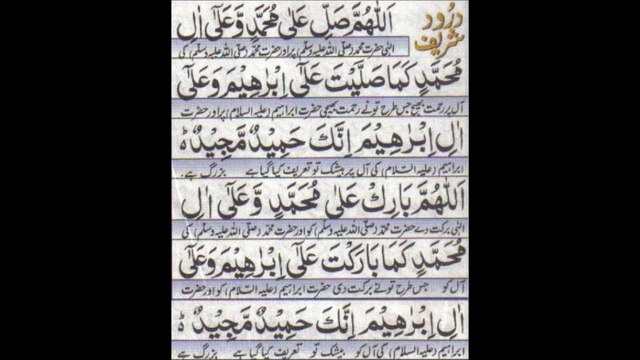 درود
شریف
اَللّٰهُمَّ صَلِّ عَلٰى مُحَمَّدٍ وَّعَلٰٓى اٰلِ
الٰہی حضرت محمد (صلّی اللہ علیہ وسلّم) پر اور حضرت محمد (صلّی اللہ علیہ وسلّم) کی
مُحَمَّدٍ كَمَا صَلَّيْتَ عَلٰٓى اِبْرٰهِيْمَ وَعَلٰٓى
آل پر رحمت بھیج جس طرح تو نے رحمت بھیجی حضرت ابراہیم (علیہ السلام) پر اور حضرت
اٰلِ اِبْرٰهِيْمَ اِنَّكَ حَمِيْدٌ مَّجِيْدٌ ؕ
ابراہیم (علیہ السّلام) کی آل پر بیشک تو تعریف کیا گیا ہے بزرگ ہے۔
اَللّٰهُمَّ بَارِكْ عَلٰى مُحَمَّدٍ وَّعَلٰٓى اٰلِ
الٰہی برکت دے حضرت محمد (صلّی اللہ علیہ وسلّم) کو اور حضرت محمد (صلّی اللہ علیہ وسلّم) کی
مُحَمَّدٍ كَمَا بَارَكْتَ عَلٰٓى اِبْرٰهِيْمَ وَعَلٰٓى
آل کو جس طرح تو نے برکت دی حضرت ابراہیم (علیہ السّلام) کو اور حضرت
اٰلِ اِبْرٰهِيْمَ اِنَّكَ حَمِيْدٌ مَّجِيْدٌ ؕ
ابراہیم (علیہ السلام) کی آل کو بیشک تو تعریف کیا گیا ہے بزرگ ہے